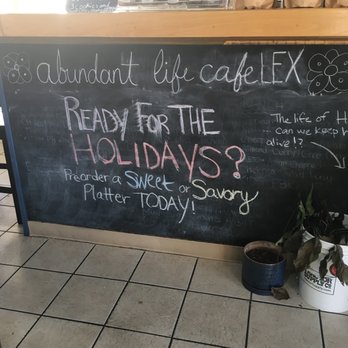 abundant life cafe LEX
READY FOR THE
HOLIDAYS?
Preorder a SWEET or Savory
Platter TODAY!
The life of H
... can we keep
alive!?